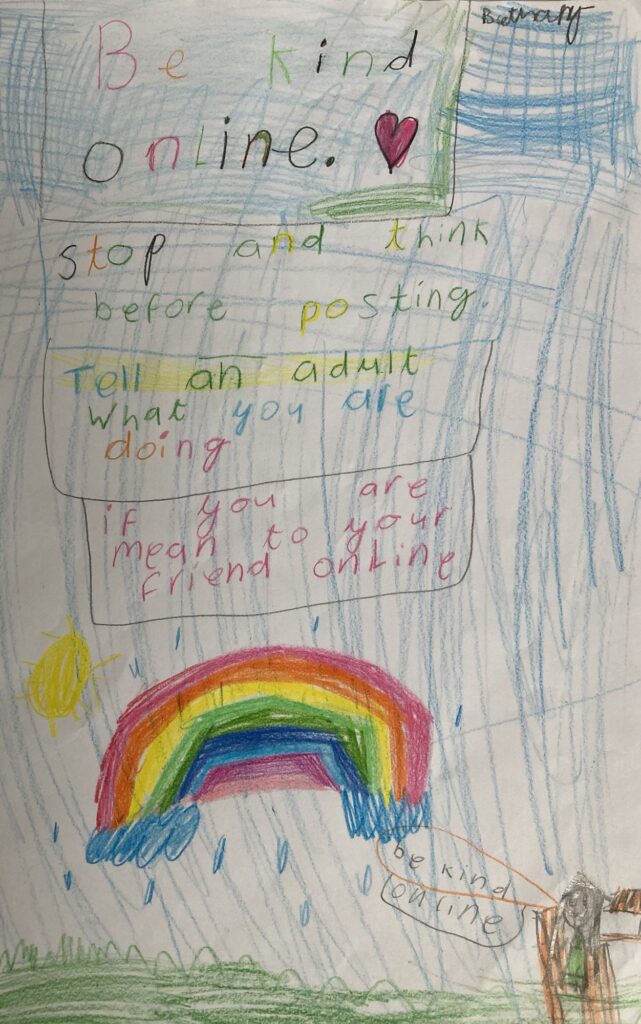 Bethany
Be kind
online.
stop and think
before posting.
Tell an adult
what you are
doing
if you are
mean to your
friend online
be kind
online